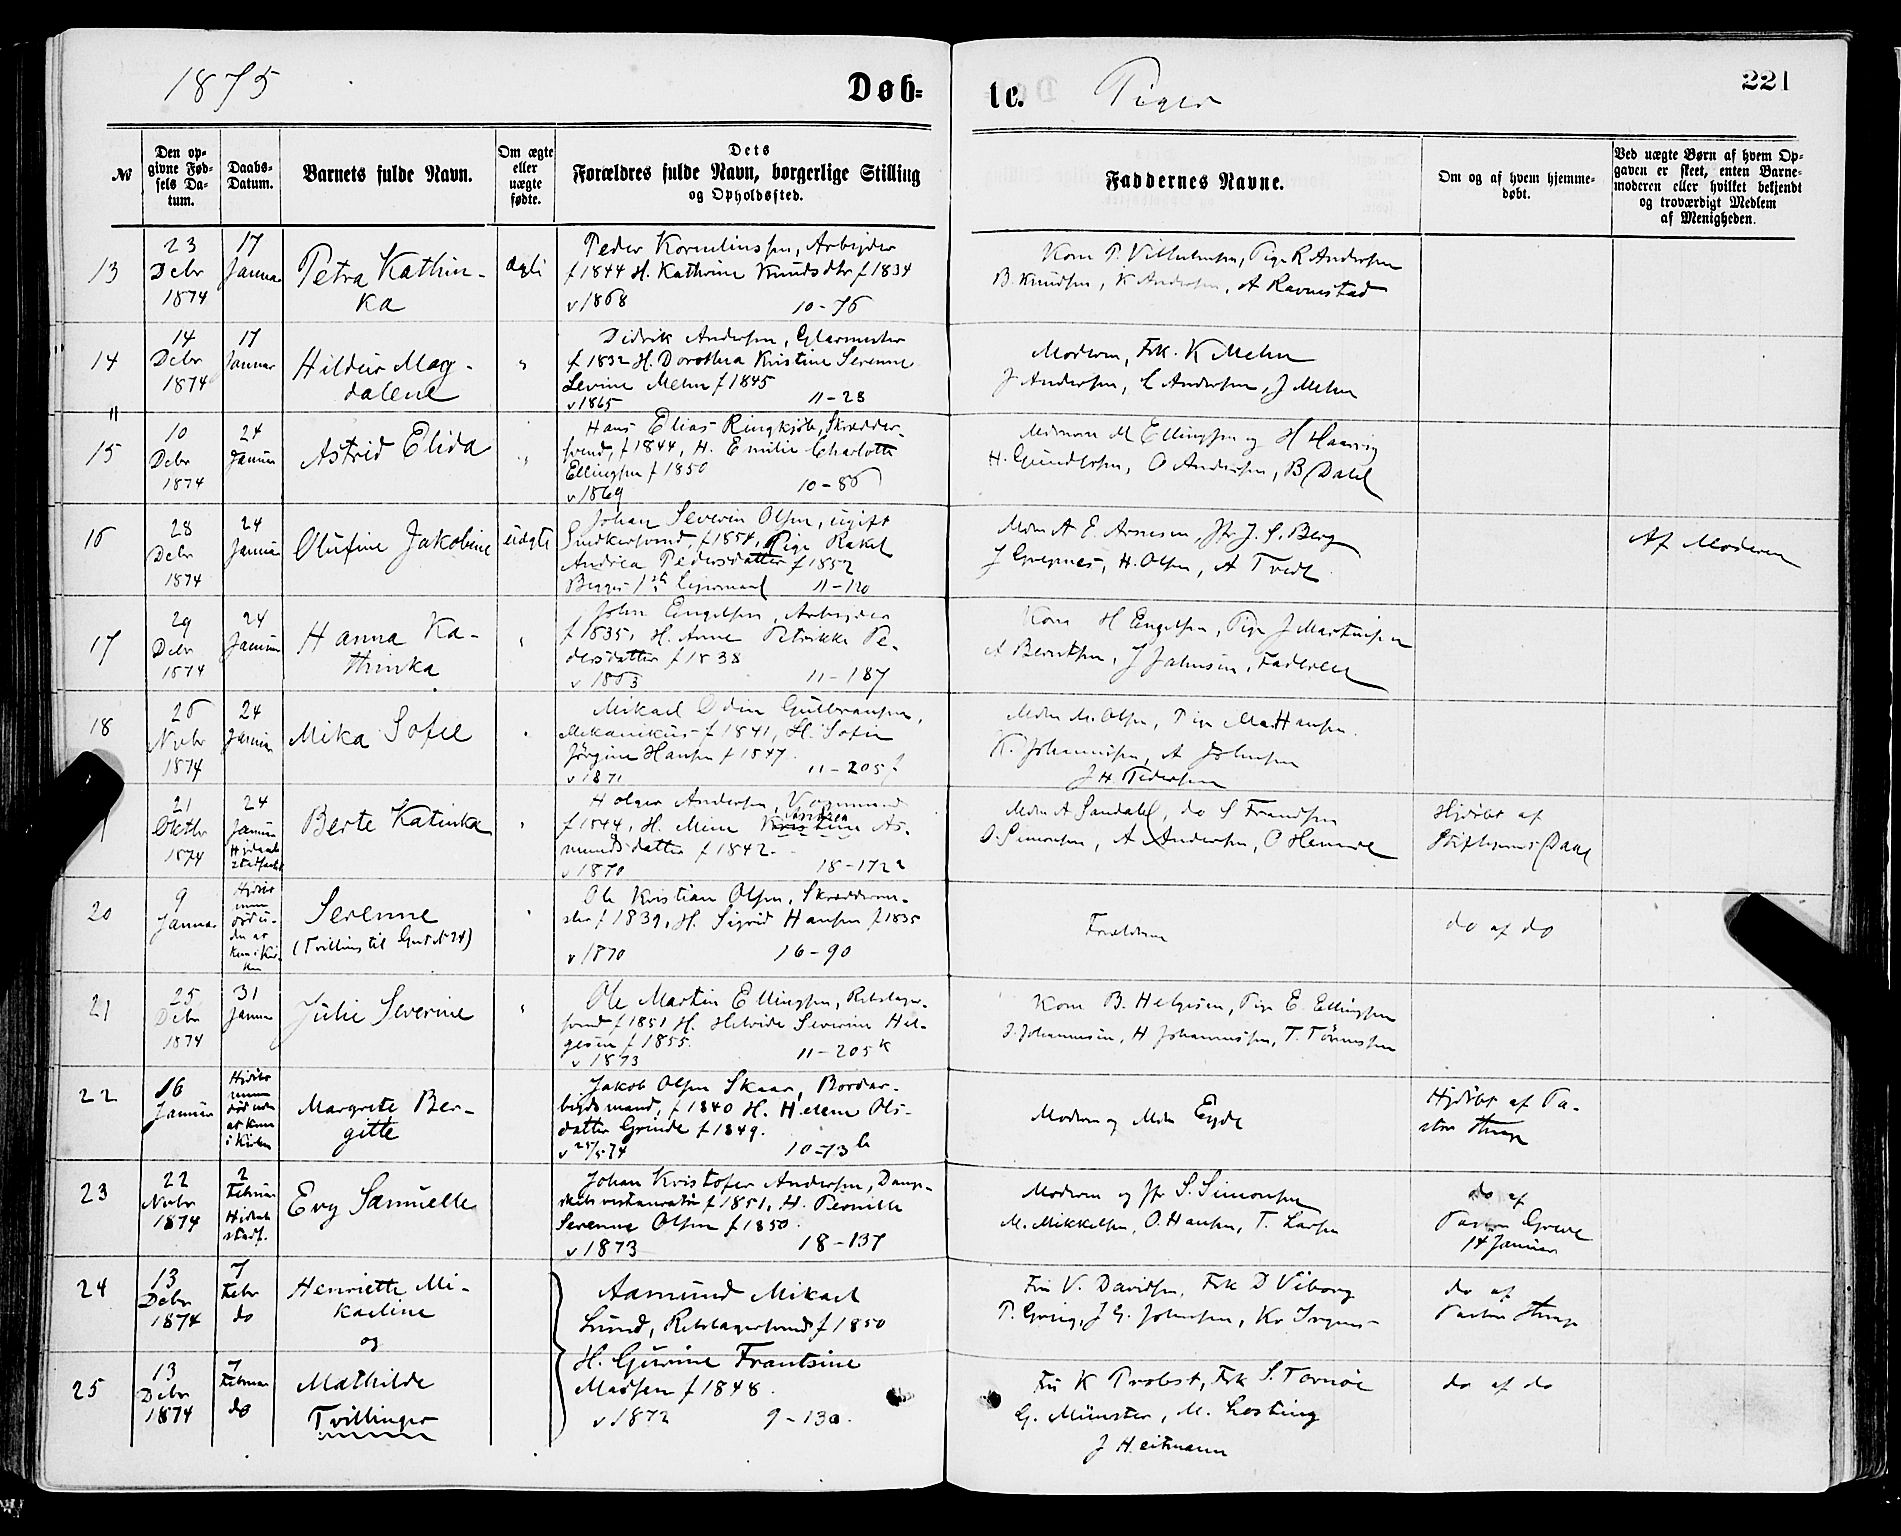 1875
Døb-
te.
Piger
221
№
Den op-
givne Fød-
sels Da-
tum.
Daabs-
Datum.
Barnets fulde Navn.
Om ægte
eller
uægte
fødte.
Dets
Forældres fulde Navn, borgerlige Stilling
og Opholdssted.
Faddernes Navne.
Om og af hvem hjemme-
døbt.
Ved uægte Børn af hvem Op-
gaven er skeet, enten Barne-
moderen eller hvilket bekjendt
og troværdigt Medlem
af Menigheden.
13
23
Debr
1874
17
Januar
Petra Kathin-
ka
ægte
Peder Korneliussen, Arbeider
f 1844 H. Kathrine Knudsdtr f 1834
v 1868 10-76
Kone P. Vilhelmsen, Pige R Andersen
B. Knudsen, K Andersen, A Ravnestad
14
14
Debr
1874
17
Januar
Hildur Mag-
dalene
"
Didrik Andersen, Glarmester
f 1832 H. Dorothea Kristine Serenne
Levine Mehn f 1845
v 1865 11-28
Moderen, Frk. K Mehn
J Andersen, E Andersen, J Mehn
15
10
Debr
1874
24
Januar
Astrid Elida
"
Hans Elias Ringkjøb, Skrædder-
svend, f 1844, H. Emilie Charlotte
Ellingsen f 1850
v 1869 10-86
M Ellingsen og H Haarvig
H. Gundersen, O Andersen, B Dahl
16
28
Debr
1874
24
Januar
Olufine Jakobine
uægte
Johan Severin Olsen, ugift
Snedkersvend, f 1854, Pige Rakel
Andrea Pedersdatter f 1852
Begges 1ste Leiermaal 11-120
Mdm A E. Arnesen, Jfr J. S. Berg
J Grepnes, H. Olsen, A Tvedt
Af Moderen
17
29
Debr
1874
24
Januar
Hanna Ka-
thinka
"
John Engelsen, Arbeider
f 1835, H. Anne Petrikke Pe-
dersdatter f 1838
v 1863 11-187
Kone H Engelsen, Pige J Martinsen
A Berntsen, J Johnsen, Faderen
18
26
Nvbr
1874
24
Januar
Mika Sofie
"
Mikael Odin Gulbransen,
Mekanikus f 1841, H. Sofie
Jørgine Hansen f 1847
v 1871 11-205f
Mdm M. Olsen, Pige Hansen
K. Johannesen, A Johnsen
J H. Pedersen
21
Oktbr
1874
24
Januar
Berte Katinka
"
Holger Andersen,
f 1844, H. Mine Kristine Andrea As-
mundsdatter f 1842.
v 1870 18-172
Mdm A Sandahl, do S Frandsen
S. Simonsen, A Andersen, O
Hjdøbt af
Dahl
20
9
Januar
Serenne
(Tvilling til Gut № 24)
"
Ole Kristian Olsen, Skrædderme-
ster f 1839, H. Sigrid Hansen f 1835
v 1870 16-90
Forældrene
do af do
21
25
Debr
1874
31
Januar
Julie Severine
"
Ole Martin Ellingsen, Rebslager-
svend f 1851 H. Helvide Severine Hel-
gesen f 1855.
v 1873 11-205k
Kone B. Helgesen, Pige E. Ellingsen
J. Johannesen, H Johannesen, T. Tønnesen
22
16
Januar
Margrete Ber-
gitte
Jakob Olsen Skaar, Bordar-
beidsmand, f 1840 H. Helene Ols-
datter Grinde f 1849.
v 25/5 74 10-13b
Moderen og Mdm Eyde
Hjdøbt af Pa-
stor
23
22
Nvbr
1874
2
Februar
Hjdaab
stadf.
Evy Samuelle
Johan Kristofer Andersen, Damp-
skibsrestauratør f 1851, H. Pernille
Serenne Olsen f 1850.
v 1873 18-137
Moderen og Jfr S. Simonsen
M. Mikkelsen, O. Hansen, T. Larsen
do af
Pastor Greve
14 Januar
24
13
Debr
1874
7
Febr
do
Henriette Mi-
kaeline
og
Aamund Mikael
Lund, Rebslagersvend f 1850
H. Gurine Frantsine
Madsen f 1848.
v 1872 9-130.
Fru V. Davidsen, Frk D Viborg
P. Grieg, J G. Johnsen, Kr Irgens
do af
Pastor
25
13
Debr
1874
7
Februar
do
Mathilde
Tvillinger
Fru K Probst, Frk S. Tornøe
G. Münster, M. Losting
J Heitmann
do af do